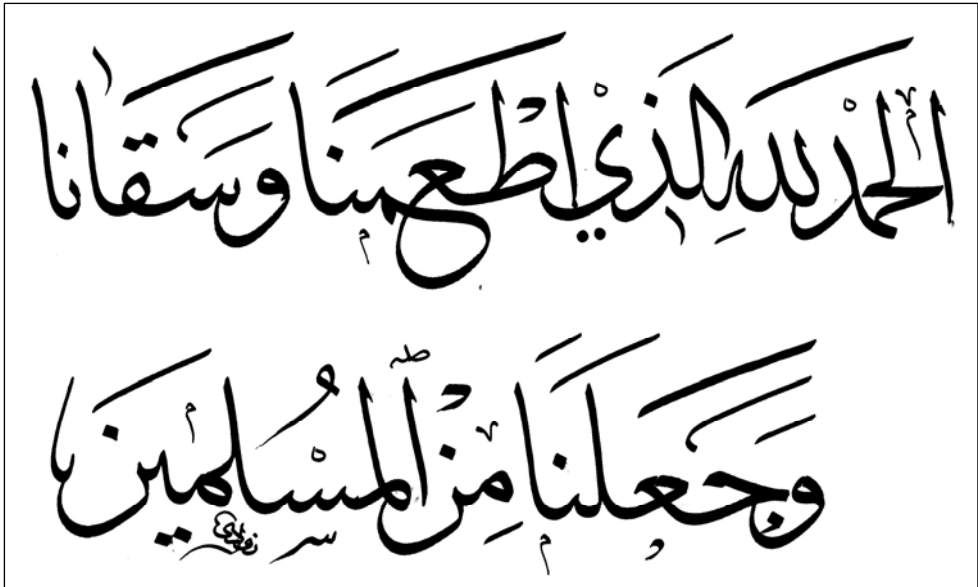 الحمد لله الذي اطعمنا وسقانا
وجعلنا من المسلمين